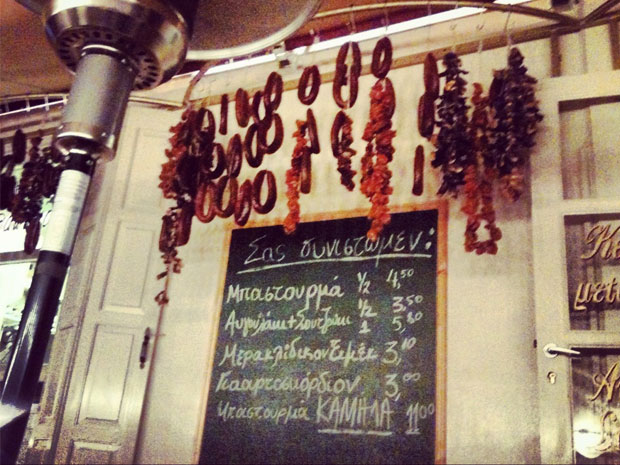 Σας συνιστώμεν:
Μπαστουρμά ½ 4,50
Αυγουλάκι+Σουτζούκι ½ 3,50
1 5,80
Μερακλίδικον Σεμέξ 3,10
Γιαουρτοσκόρδιον 3,00
Μπαστουρμά ΚΑΜΗΛΑ 11,00